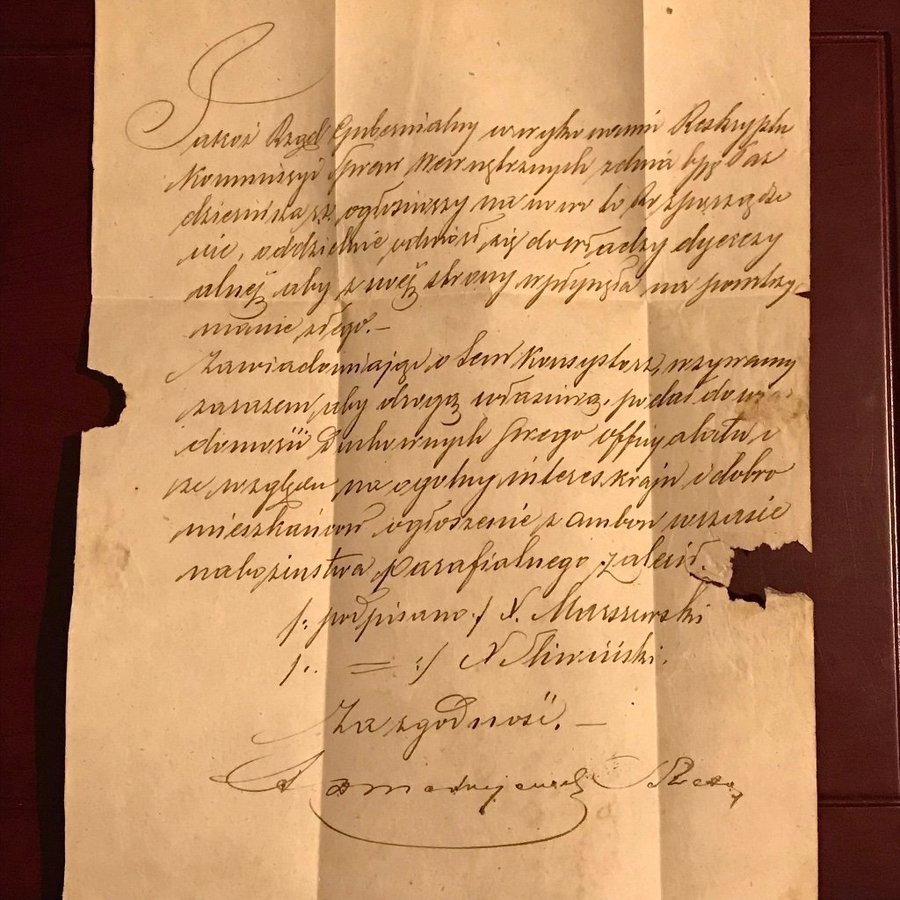 Jakoż Rząd Gubernialny w wykonaniu Reskryptu
Kommissyi Spraw Wewnętrznych z dnia
dziernika ogłosiwszy na nowo to Rozporządze
nie, oddzielnie odniósł się do władzy dyecezy
alnéj aby z swéj strony wpłynęła na powstrzy
manie złego. —
Zawiadomiając o tem Konsystorz, wzywamy
zarazem, aby drogą właściwą, podał do wia
domości Duchownych swego offycyałatu i
ze względu na ogólny interes kraju i dobro
mieszkańców ogłoszenie z ambon w czasie
nabożeństwa parafialnego zalecił.
/: podpisano :/ N. Marszewski
/: = :/ N Śliwiński.
Za zgodność. —